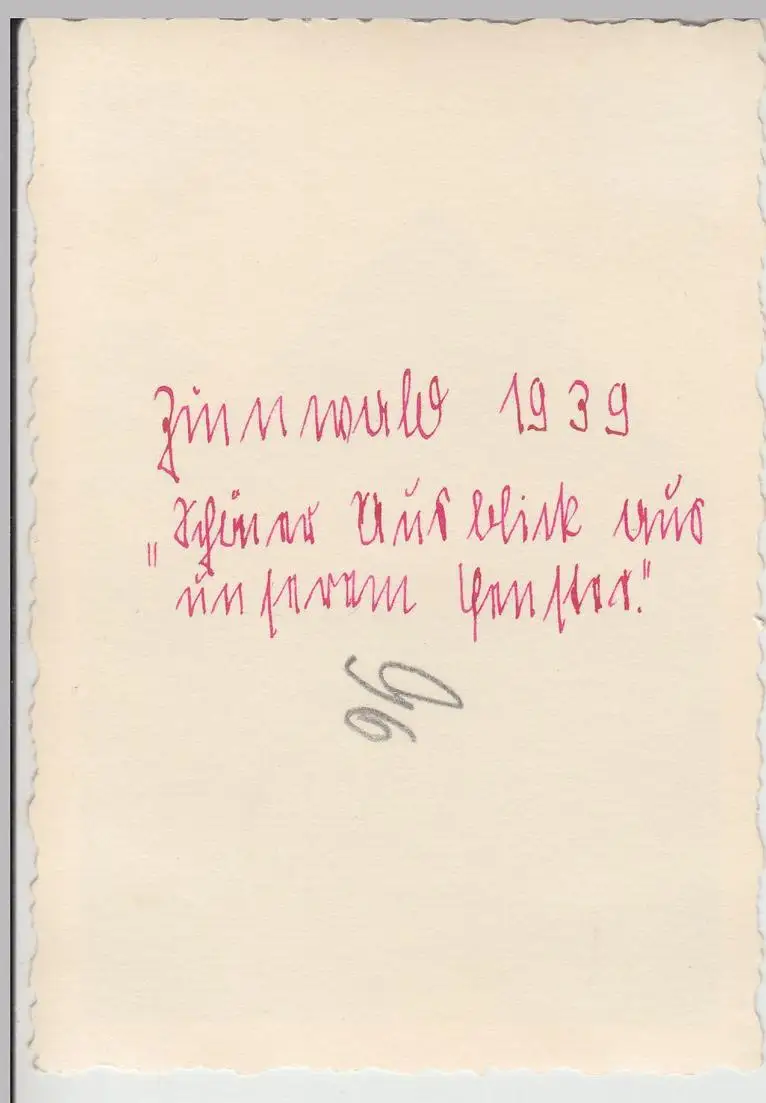 Zinnwald 1939
„Schöner Ausblick aus
unserem Fenster."